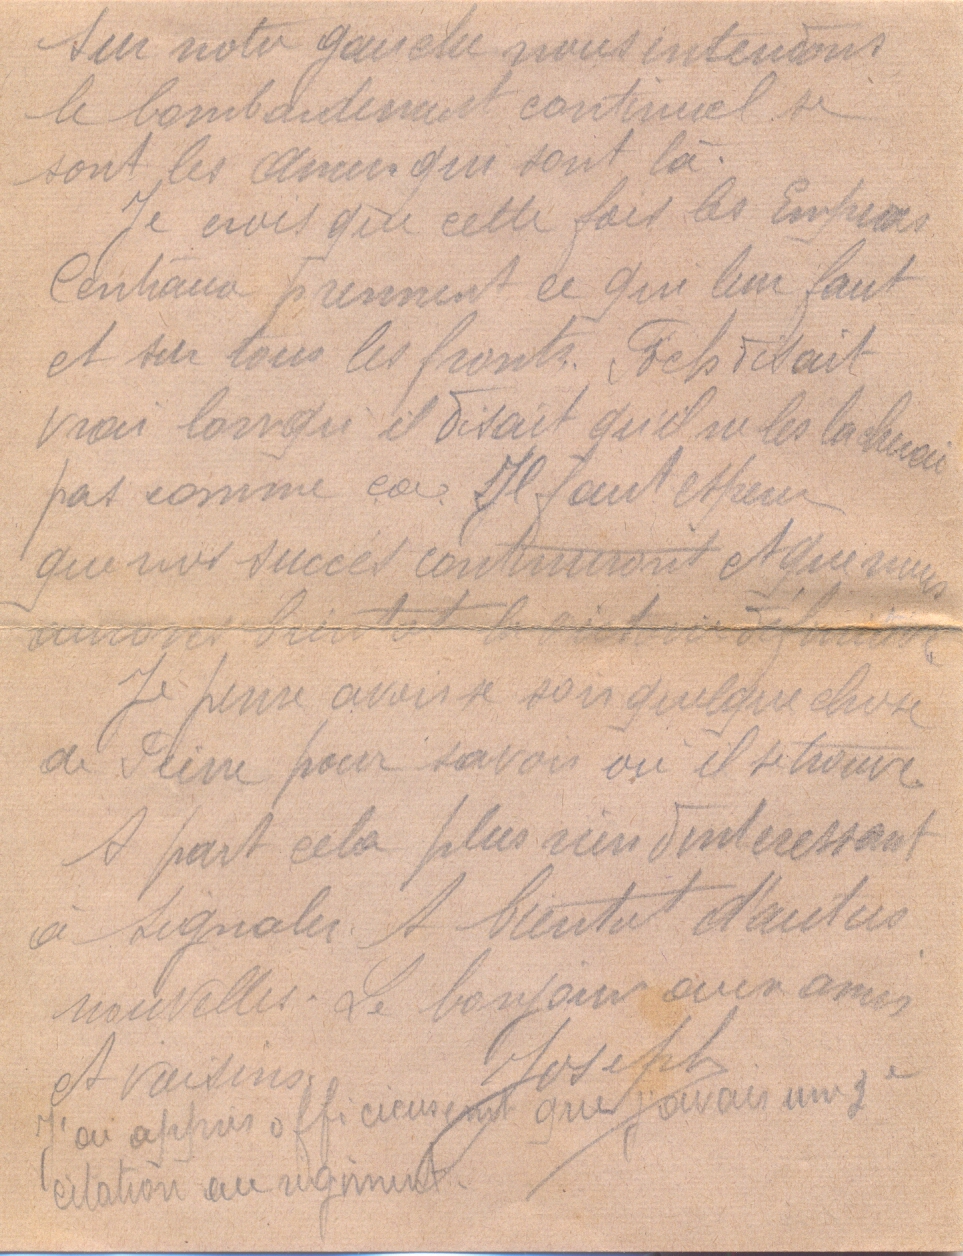 Sur notre gauche nous entendons
le bombardement continuel se
sont les qui sont là.
Je crois que cette fois les Empires
Centraux prennent ce qui leur faut
et sur tous les fronts. Foch disait
vrai lorsqu'il disait qu'il ne les lacherai
pas comme ca. Il faut esperer
que nos succés continuront et que nous
aurons bientot la victoire définitive
Je pense avoir se soir quelque chose
de Pierre pour savoir ou il se trouve.
A part cela plus rien d'interessant
à signaler. A bientot d'autres
nouvelles. Le bonjour aux amis
et voisins.
Joseph
J'ai appris officieusement que j'avais une 3e
citation au regiment.